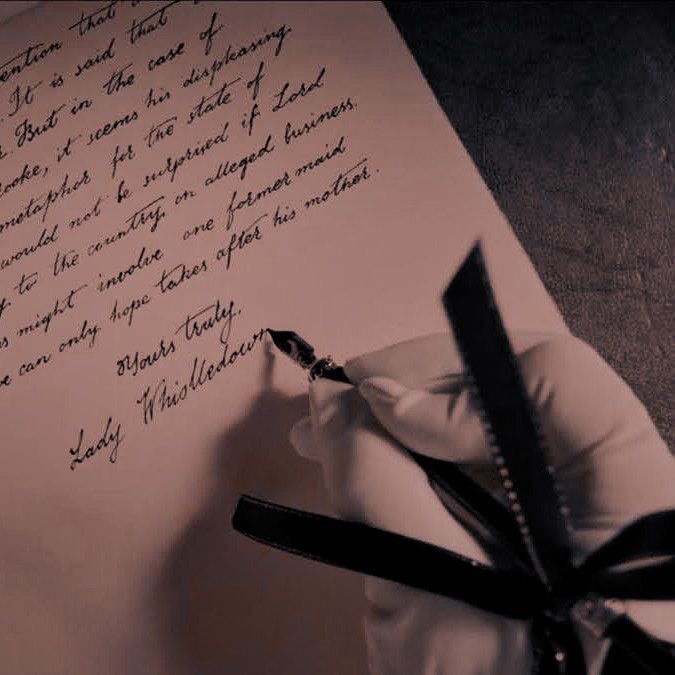 ention that
. It is said that
. But in the case of
ooke, it seems his displeasing
metaphor for the state of
would not be surprised if Lord
to the country, on alleged business
s might involve one former maid
e can only hope takes after his mother.
Yours truly,
Lady Whistledown